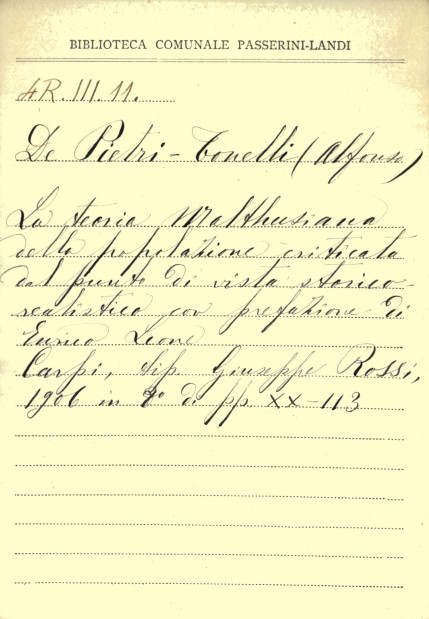 BIBLIOTECA COMUNALE PASSERINI-LANDI
4R.III.11.
De Pietri-Tonelli (Alfonso)
La teoria Malthusiana
della popolazione criticata
dal punto di vista storico-
realistico con prefazione di
Enrico Leone
Carpi, tip Giuseppe Rossi,
1906 in 8º di pp XX-113